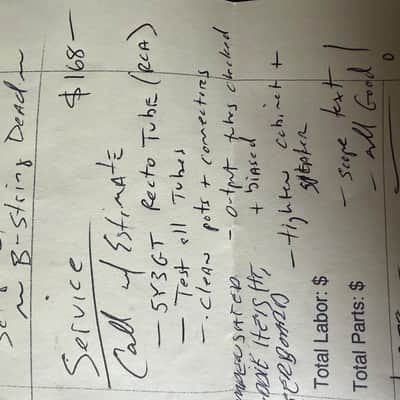 ~ B-String Dead ~
Service $168 —
Call w/ Estimate
— 5Y3GT Recto Tube (RCA)
— Test all Tubes
— clean pots + connections
— output tubes checked
+ biased
— tighten cabinet +
speaker
Total Labor: $ — scope test
Total Parts: $ — all Good!